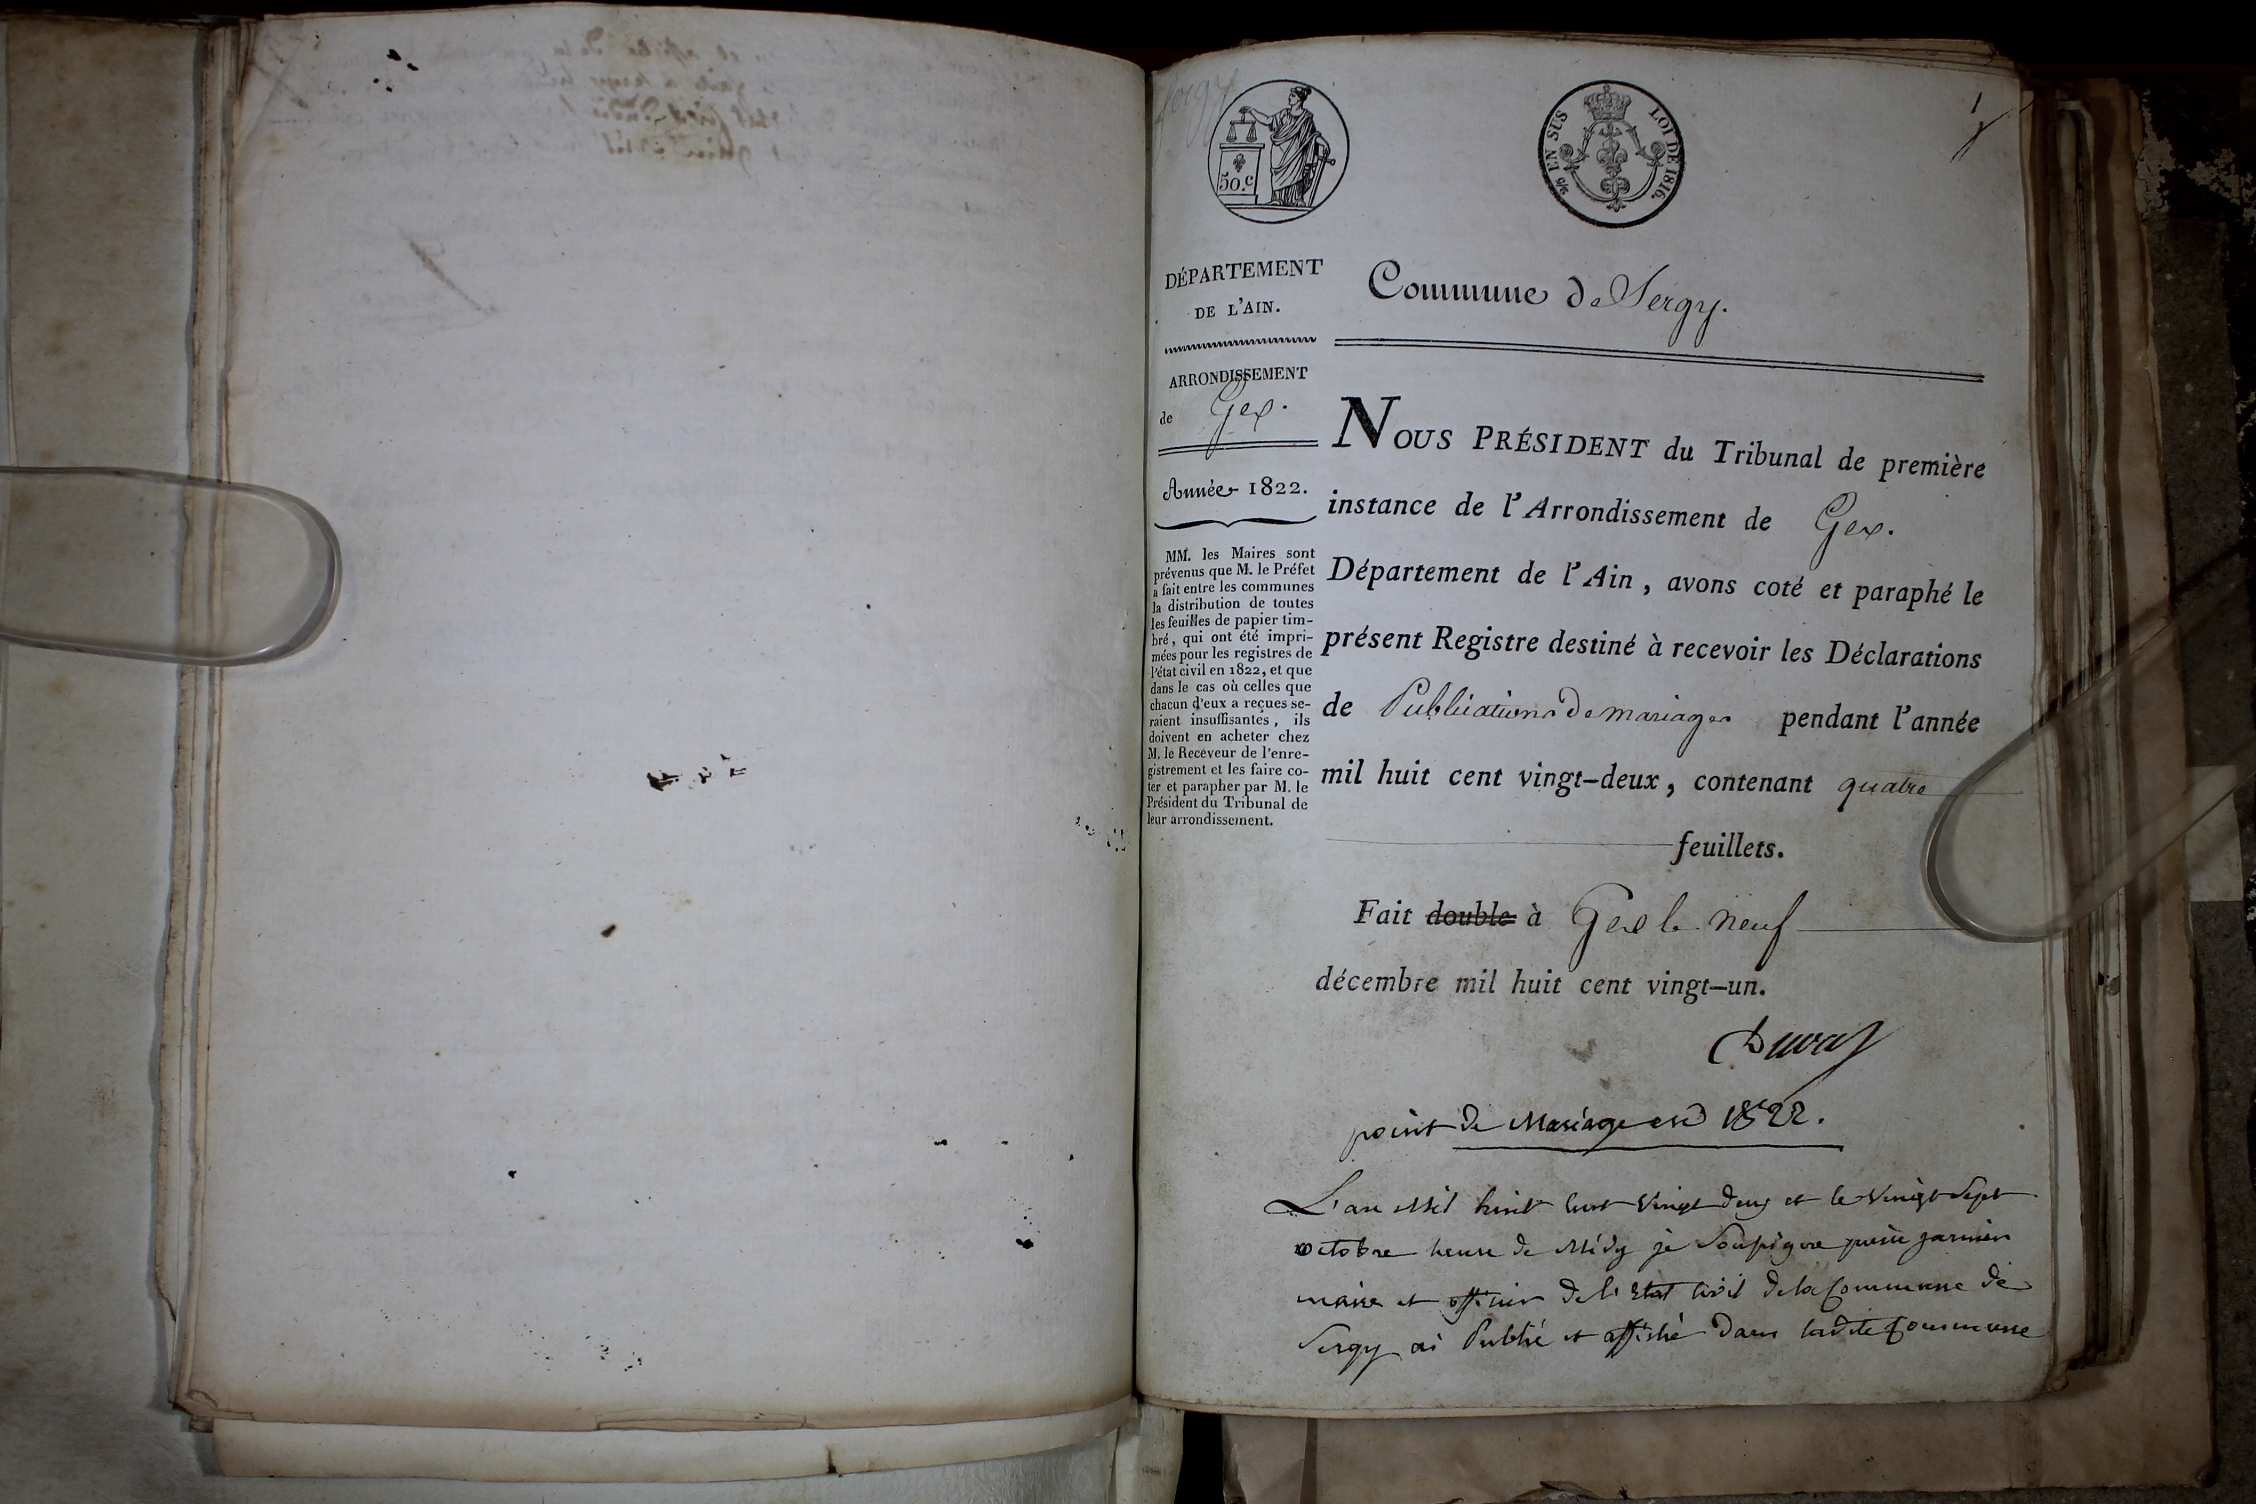 50.c
LOI DE 1816.
EN SUS
1
DÉPARTEMENT
DE L'AIN.
ARRONDISSEMENT
de Gex.
Année 1822.
MM. les Maires sont
prévenus que M. le Préfet
a fait entre les communes
la distribution de toutes
les feuilles de papier tim-
bré, qui ont été impri-
mées pour les registres de
l'état civil en 1822, et que
dans le cas où celles que
chacun d'eux a reçues se-
raient insuffisantes, ils
doivent en acheter chez
M. le Receveur de l'enre-
gistrement et les faire co-
ter et parapher par M. le
Président du Tribunal de
leur arrondissement.
Commune de Sergy.
NOUS PRÉSIDENT du Tribunal de première
instance de l'Arrondissement de Gex.
Département de l'Ain, avons coté et paraphé le
présent Registre destiné à recevoir les Déclarations
de Publications de mariages pendant l'année
mil huit cent vingt-deux, contenant quatre
feuillets.
Fait double à Gex le neuf
décembre mil huit cent vingt-un.
Duval
point de Mariage en 1822.
L'an Mil huit cent vingt deux et le vingt sept
octobre heure de Midy je soussigne garnier
maire et officier de l'Etat Civil de la Commune de
Sergy ai Publié et affiché dans ladite Commune